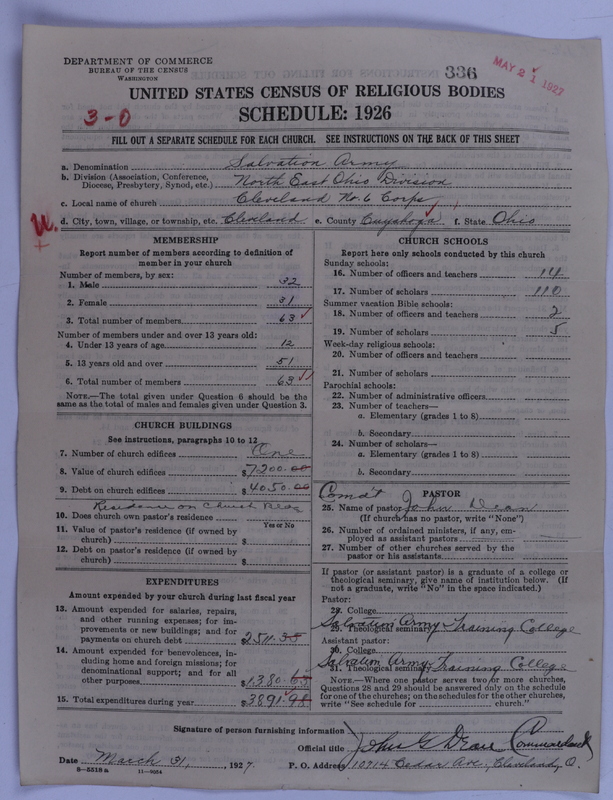 DEPARTMENT OF COMMERCE
BUREAU OF THE CENSUS
WASHINGTON
336
MAY 21 1927
UNITED STATES CENSUS OF RELIGIOUS BODIES
3-0
SCHEDULE: 1926
FILL OUT A SEPARATE SCHEDULE FOR EACH CHURCH. SEE INSTRUCTIONS ON THE BACK OF THIS SHEET
a. Denomination Salvation Army
b. Division (Association, Conference, Diocese, Presbytery, Synod, etc.) North East Ohio Division
c. Local name of church Cleveland No. 6 Corps
U.
d. City, town, village, or township, etc. Cleveland e. County Cuyahoga f. State Ohio
MEMBERSHIP
Report number of members according to definition of
member in your church
Number of members, by sex:
1. Male 32
2. Female 31
3. Total number of members 63
Number of members under and over 13 years old:
4. Under 13 years of age 12
5. 13 years old and over 51
6. Total number of members 63
NOTE.—The total given under Question 6 should be the
same as the total of males and females given under Question 3.
CHURCH BUILDINGS
See instructions, paragraphs 10 to 12
7. Number of church edifices One
8. Value of church edifices $7200.00
9. Debt on church edifices $4050.00
Residence on Church Bldg
10. Does church own pastor's residence
Yes or No
11. Value of pastor's residence (if owned by
church) $
12. Debt on pastor's residence (if owned by
church) $
EXPENDITURES
Amount expended by your church during last fiscal year
13. Amount expended for salaries, repairs,
and other running expenses; for im-
provements or new buildings; and for
payments on church debt $2511.35
14. Amount expended for benevolences, in-
cluding home and foreign missions; for
denominational support; and for all
other purposes $1380.63
15. Total expenditures during year $3891.98
CHURCH SCHOOLS
Report here only schools conducted by this church
Sunday schools:
16. Number of officers and teachers 14
17. Number of scholars 110
Summer vacation Bible schools:
18. Number of officers and teachers 2
19. Number of scholars 5
Week-day religious schools:
20. Number of officers and teachers
21. Number of scholars
Parochial schools:
22. Number of administrative officers
23. Number of teachers—
a. Elementary (grades 1 to 8)
b. Secondary
24. Number of scholars—
a. Elementary (grades 1 to 8)
b. Secondary
Comd't PASTOR
25. Name of pastor John Dean
(If church has no pastor, write "None")
26. Number of ordained ministers, if any, em-
ployed as assistant pastors
27. Number of other churches served by the
pastor or his assistants
If pastor (or assistant pastor) is a graduate of a college or
theological seminary, give name of institution below. (If
not a graduate, write "No" in the space indicated.)
Pastor:
28. College
29. Theological seminary Salvation Army Training College
Assistant pastor:
30. College
31. Theological seminary Salvation Army Training College
NOTE.—Where one pastor serves two or more churches,
Questions 28 and 29 should be answered only on the schedule
for one of the churches; on the schedules for the other churches,
write "See schedule for church."
Signature of person furnishing information John G Dean
Official title Commandant
Date March 31, 1927. P. O. Address 10914 Cedar Ave., Cleveland, O.
8-5518 a 11-9084